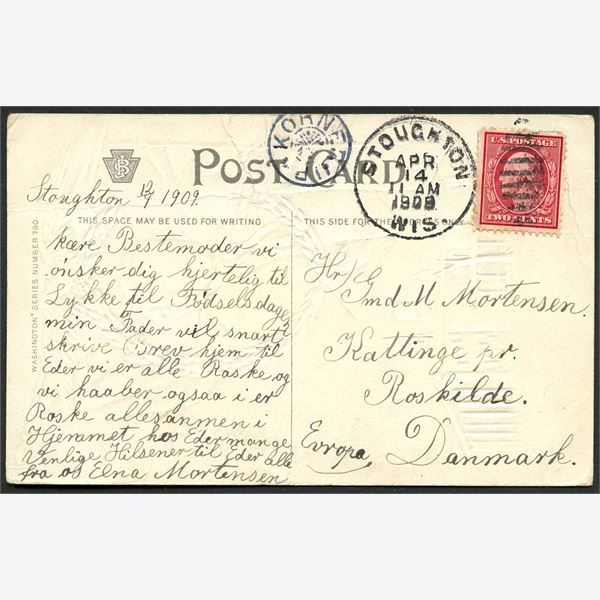 POST CARD
KORNE
STOUGHTON
APR
14
11 AM
1909
WIS.
U.S. POSTAGE
TWO CENTS
THIS SPACE MAY BE USED FOR WRITING
THIS SIDE FOR THE
WASHINGTON SERIES NUMBER 760.
Stoughton 12/4 1909.
kære Bestemoder vi
ønsker dig hjertelig til
Lykke til Fødselsdagen
min Fader vil snart
skrive Brev hjem til
Eder vi er alle Raske og
vi haaber ogsaa i er
Raske allesanmen i
Hjemmet hos Eder mange
Venlige Hilsener til Eder alle
fra os Elna Mortensen
Hr/ Gmd M Mortensen.
Kattinge pr.
Roskilde.
Evropa Danmark.